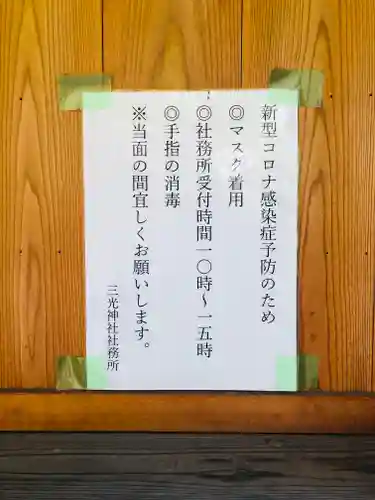 新型コロナ感染症予防のため
◎マスク着用
◎社務所受付時間一〇時～一五時
◎手指の消毒
※当面の間宜しくお願いします。
三光神社社務所